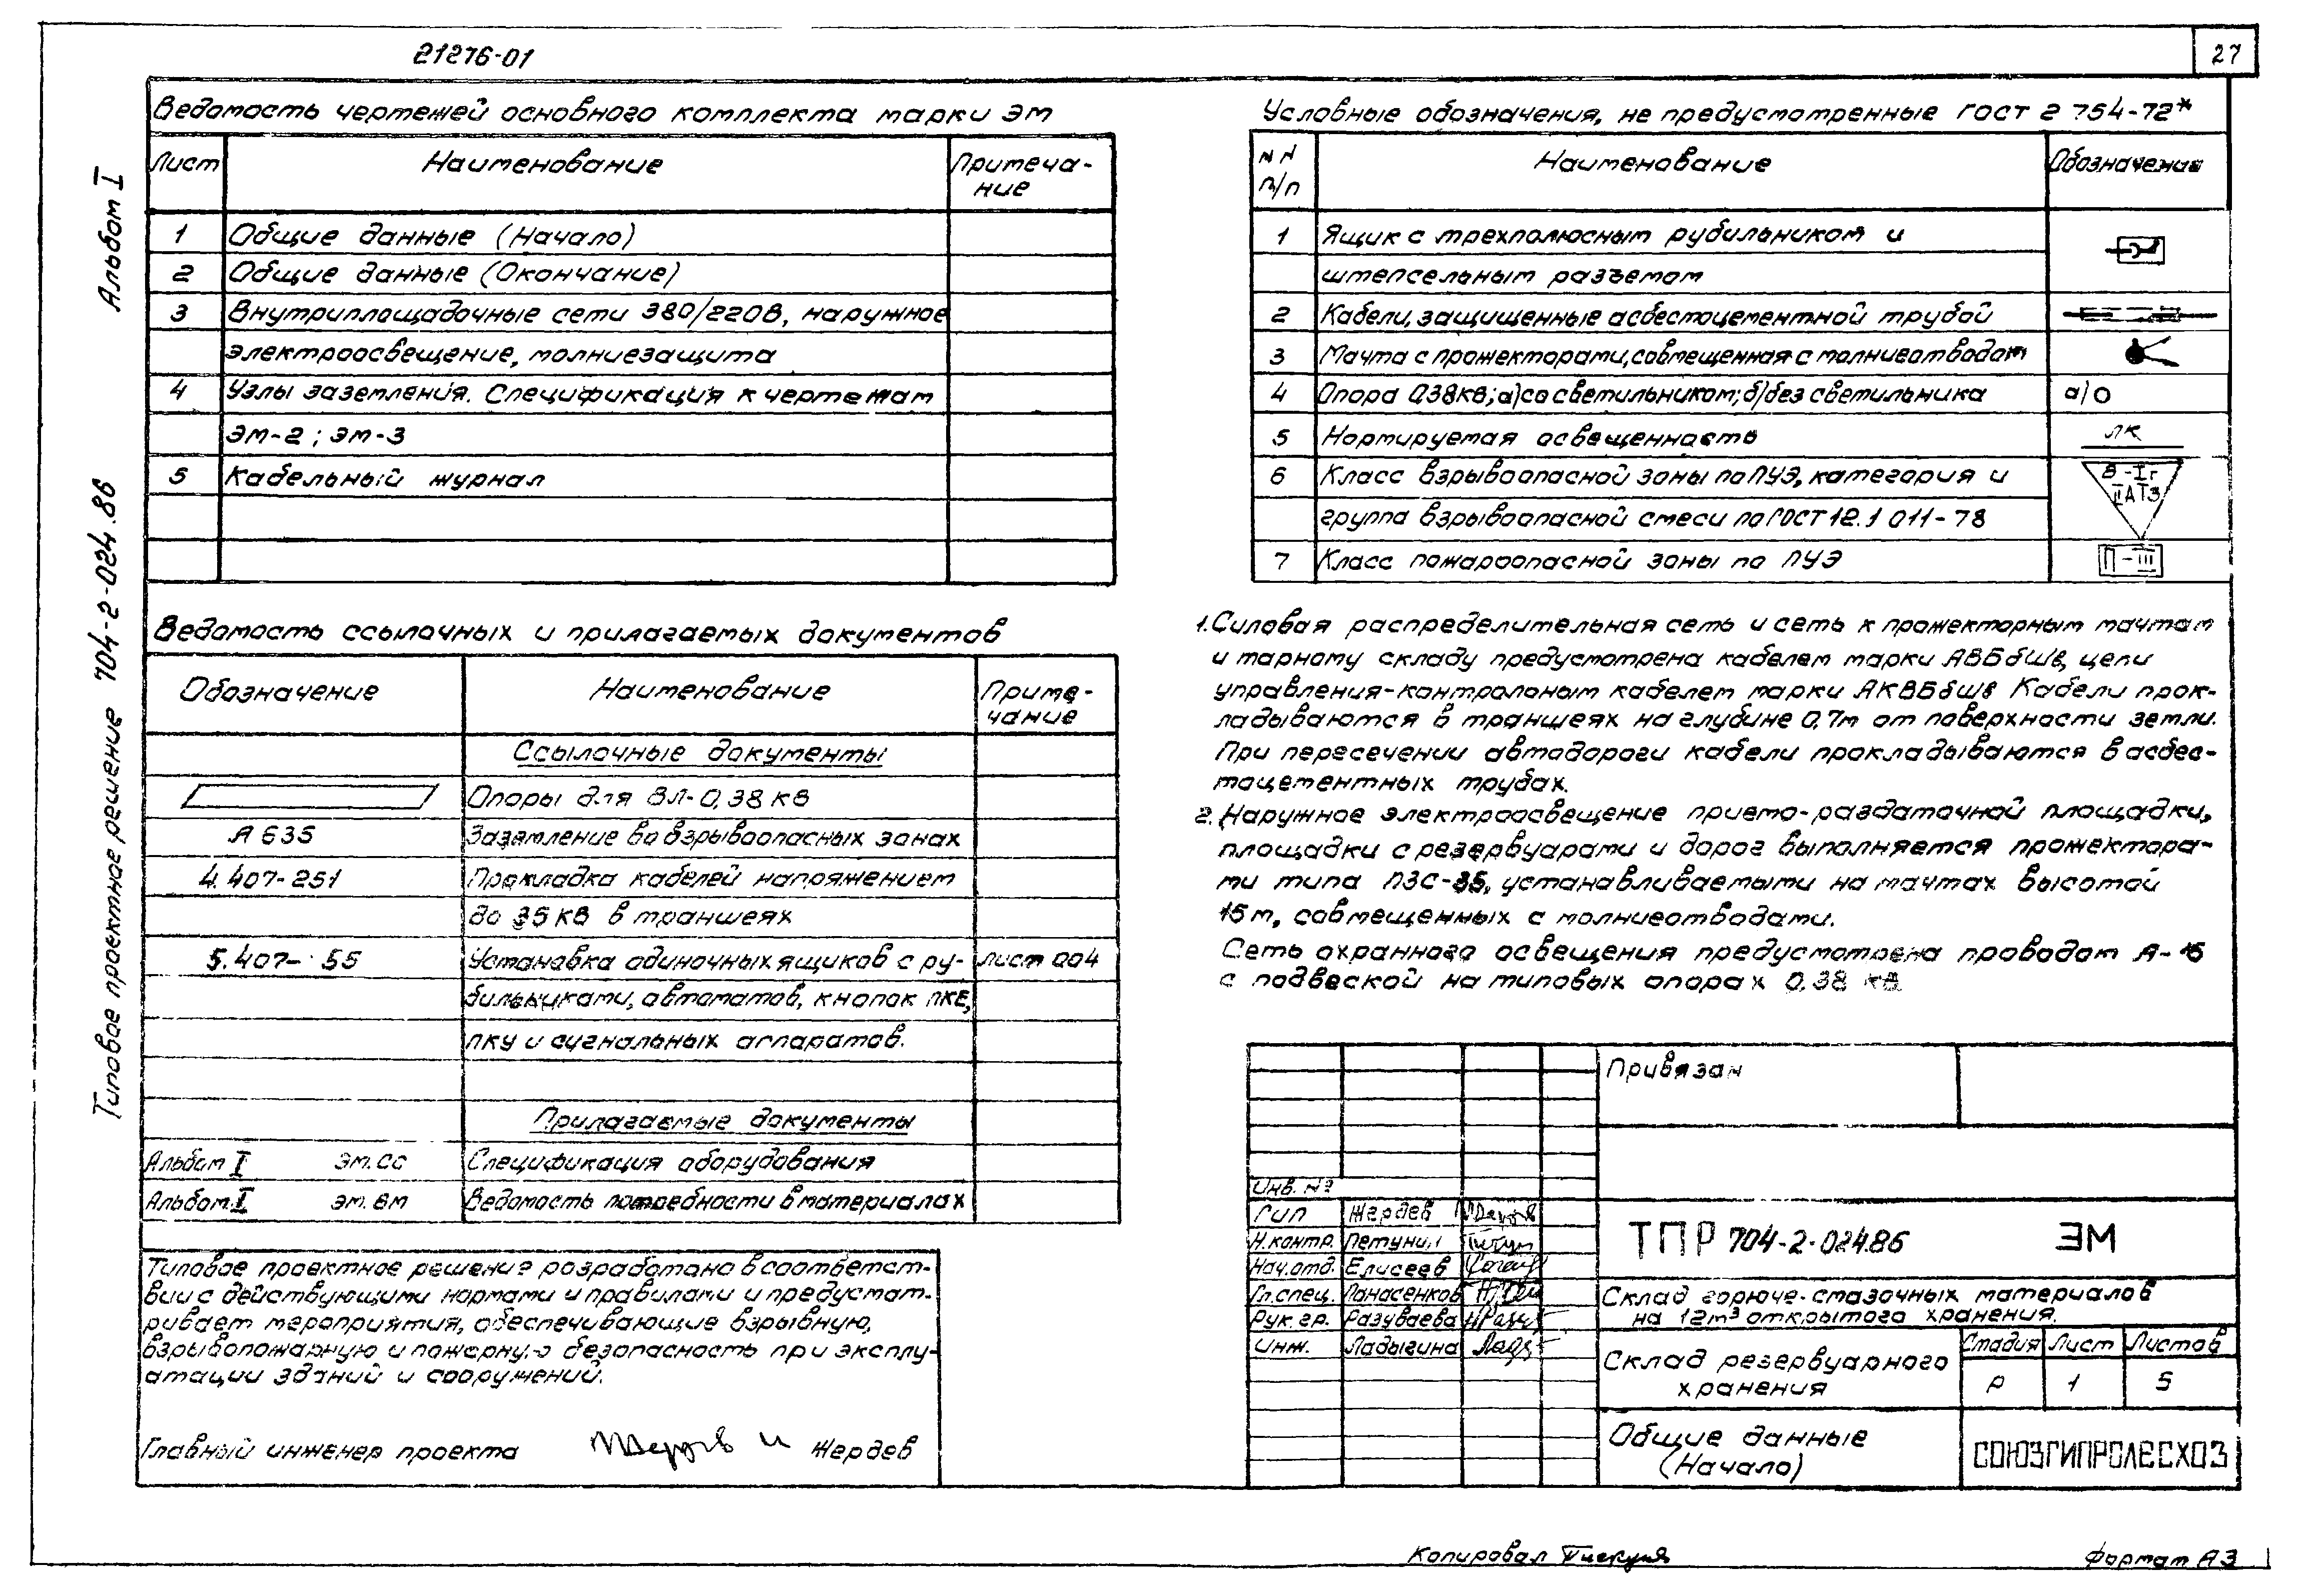 21276-01
27
Альбом I
Типовое проектное решение 704-2-024.86
Ведомость чертежей основного комплекта марки ЭМ
Лист Наименование Примеча-
ние
1 Общие данные (Начало)
2 Общие данные (Окончание)
3 Внутриплощадочные сети 380/220В, наружное
электроосвещение, молниезащита
4 Узлы заземления. Спецификация к чертежам
ЭМ-2; ЭМ-3
5 Кабельный журнал
Ведомость ссылочных и прилагаемых документов
Обозначение Наименование Приме-
чание
Ссылочные документы
Опоры для ВЛ-0,38 кВ
А 635 Заземление во взрывоопасных зонах
4.407-251 Прокладка кабелей напряжением
до 35 кВ в траншеях
5.407-55 Установка одиночных ящиков с ру- лист 004
бильниками, автоматов, кнопок ПКЕ,
ПКУ и сигнальных аппаратов.
Прилагаемые документы
Альбом I ЭМ.СО Спецификация оборудования
Альбом I ЭМ.ВМ Ведомость потребности в материалах
Типовое проектное решение разработано в соответст-
вии с действующими нормами и правилами и предусмат-
ривает мероприятия, обеспечивающие взрывную,
взрывопожарную и пожарную безопасность при эксплу-
атации зданий и сооружений.
Главный инженер проекта Жердев
Условные обозначения, не предусмотренные ГОСТ 2 754-72*
NN
п/п
Наименование Обозначение
1 Ящик с трехполюсным рубильником и
штепсельным разъемом
2 Кабели, защищенные асбестоцементной трубой
3 Мачта с прожекторами, совмещенная с молниеотводом
4 Опора 0,38кВ; а) со светильником; б) без светильника а)О
5 Нормируемая освещенность ЛК
6 Класс взрывоопасной зоны по ПУЭ, категория и В-Iг
группа взрывоопасной смеси по ГОСТ 12.1 011-78 IIАТ3
7 Класс пожароопасной зоны по ПУЭ П-III
1. Силовая распределительная сеть и сеть к прожекторным мачтам
и тарному складу предусмотрена кабелем марки АВБбШв, цепи
управления-контрольным кабелем марки АКВБбШв Кабели прок-
ладываются в траншеях на глубине 0,7м от поверхности земли.
При пересечении автодороги кабели прокладываются в асбес-
тоцементных трубах.
2. Наружное электроосвещение приемо-раздаточной площадки,
площадки с резервуарами и дорог выполняется прожектора-
ми типа ПЗС-35, устанавливаемыми на мачтах высотой
15м, совмещенных с молниеотводами.
Сеть охранного освещения предусмотрена проводом А-16
с подвеской на типовых опорах 0,38 кВ.
Привязан
Инв. №
ГИП Жердев
Н.контр. Петунин
Нач.отд. Елисеев
Гл.спец. Панасенков
Рук.гр. Разуваева
Инж. Ладыгина
ТПР 704-2-024.86 ЭМ
Склад горюче-смазочных материалов
на 12м³ открытого хранения.
Склад резервуарного
хранения
Стадия Лист Листов
Р 1 5
Общие данные
(Начало)
СОЮЗГИПРОЛЕСХОЗ
Копировал
Формат А3